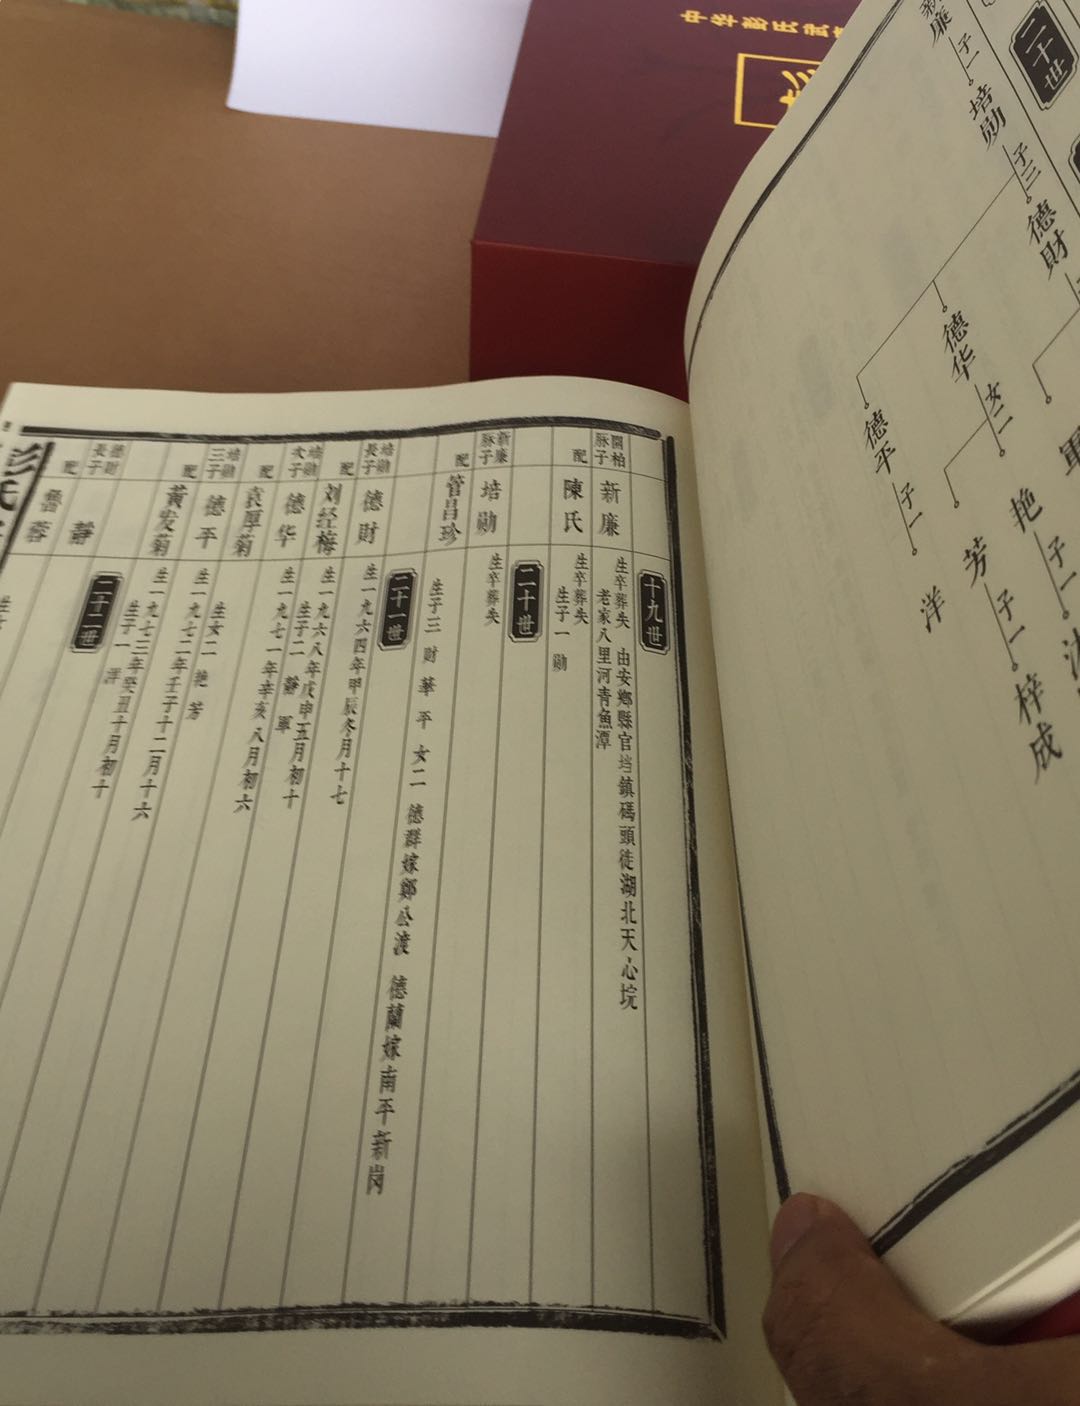 中华彭氏
二十世
子一
培勋
子三
德财
德华
女二
德平
子一
洋
艳
子一
芳
子一
梓成
十九世
開柏脉子
新廉
生卒葬失 由安鄉縣官垱鎮碼頭徒湖北天心垸
老家八里河青魚潭
配
陳氏
生卒葬失
生子一 勋
二十世
新廉脉子
培勋
生卒葬失
配
管昌珍
生子三 财 華 平 女二 德群嫁鄭公渡 德蘭嫁南平新岗
二十一世
培勋長子
德财
生一九六四年甲辰冬月十七
配
刘经梅
生一九六八年戊申五月初十
生子二 靜 軍
培勋次子
德华
生一九七一年辛亥八月初六
配
袁厚菊
生女二 艳 芳
培勋三子
德平
生一九七二年壬子十二月十六
配
黃发菊
生一九七三年癸丑十月初十
生子一 洋
二十二世
德财長子
靜
配
蓉
彭氏